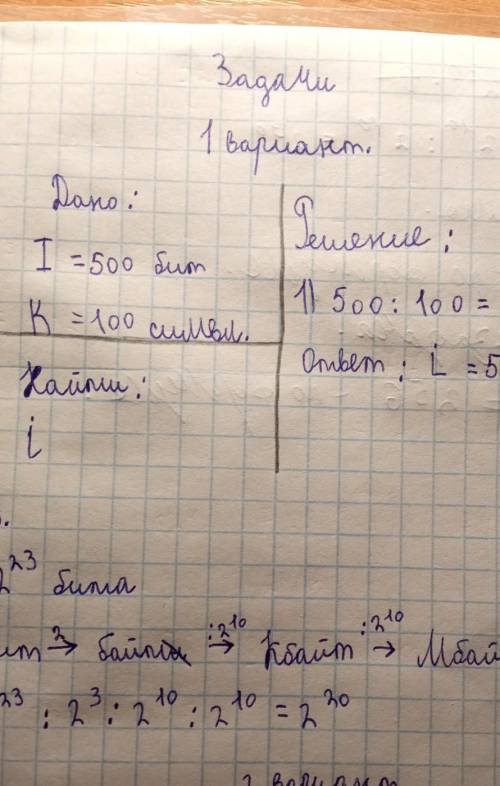 Задачи
1 вариант.
Дано:
I = 500 бит
K = 100 символ.
Найти:
i
Решение:
1) 500 : 100 =
Ответ: i = 5
2²³ бита
байта :2¹⁰ → Кбайт :2¹⁰ → Мбай
²³ : 2³ : 2¹⁰ : 2¹⁰ = 2²⁰
вариант